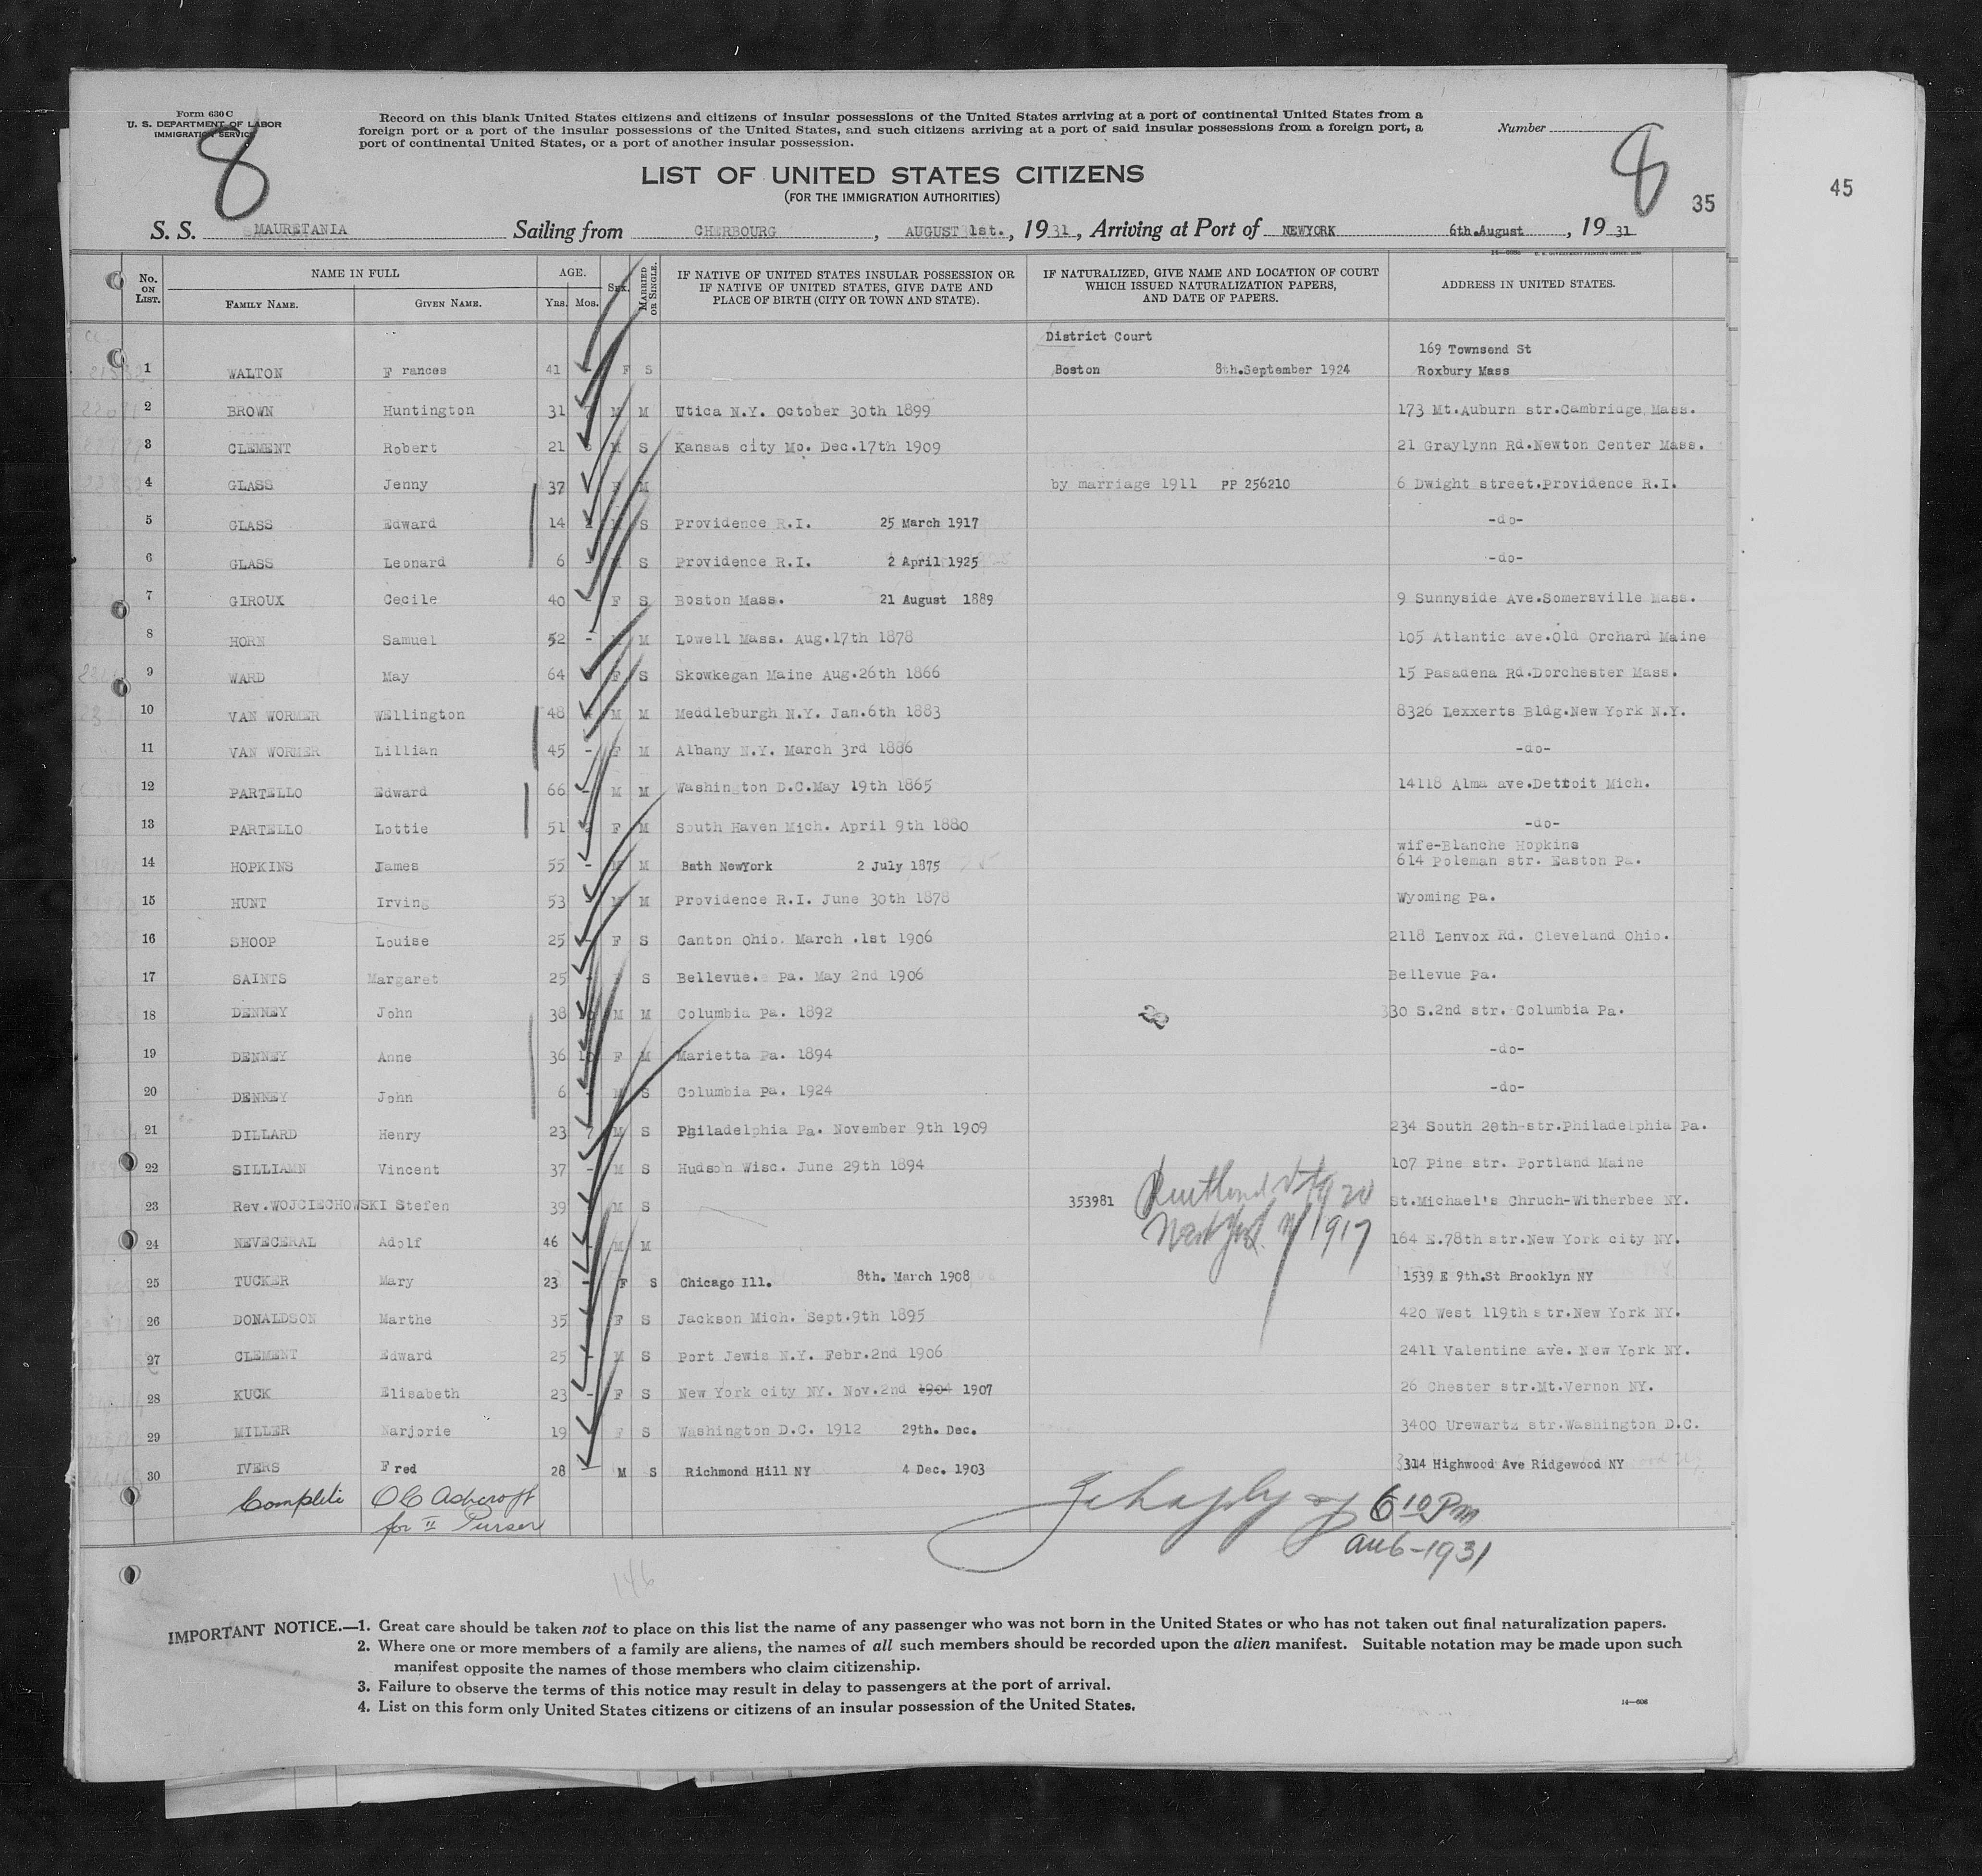 Form 630 C
U. S. DEPARTMENT OF LABOR
IMMIGRATION SERVICE
8
Record on this blank United States citizens and citizens of insular possessions of the United States arriving at a port of continental United States from a
foreign port or a port of the insular possessions of the United States, and such citizens arriving at a port of said insular possessions from a foreign port, a
port of continental United States, or a port of another insular possession.
Number
8
35
45
LIST OF UNITED STATES CITIZENS
(FOR THE IMMIGRATION AUTHORITIES)
S. S. MAURETANIA Sailing from CHERBOURG , AUGUST 1st. , 19 31 , Arriving at Port of NEWYORK 6th.August , 19 31
No. ON LIST. NAME IN FULL FAMILY NAME. GIVEN NAME. AGE. Yrs. Mos. SEX. MARRIED OR SINGLE. IF NATIVE OF UNITED STATES INSULAR POSSESSION OR IF NATIVE OF UNITED STATES, GIVE DATE AND PLACE OF BIRTH (CITY OR TOWN AND STATE). IF NATURALIZED, GIVE NAME AND LOCATION OF COURT WHICH ISSUED NATURALIZATION PAPERS, AND DATE OF PAPERS. ADDRESS IN UNITED STATES.
District Court 169 Townsend St
1 WALTON F rances 41 F S Boston 8th.September 1924 Roxbury Mass
2 BROWN Huntington 31 M M Utica N.Y. October 30th 1899 173 Mt.Auburn str.Cambridge Mass.
3 CLEMENT Robert 21 M S Kansas city Mo. Dec.17th 1909 21 Graylynn Rd.Newton Center Mass.
4 GLASS Jenny 37 F M by marriage 1911 PP 256210 6 Dwight street.Providence R.I.
5 GLASS Edward 14 S Providence R.I. 25 March 1917 -do-
6 GLASS Leonard 6 S Providence R.I. 2 April 1925 -do-
7 GIROUX Cecile 40 F S Boston Mass. 21 August 1889 9 Sunnyside Ave.Somersville Mass.
8 HORN Samuel 52 - M Lowell Mass. Aug.17th 1878 105 Atlantic ave.Old Orchard Maine
9 WARD May 64 F S Skowkegan Maine Aug.26th 1866 15 Pasadena Rd.Dorchester Mass.
10 VAN WORMER WEllington 48 M M Meddleburgh N.Y. Jan.6th 1883 8326 Lexxerts Bldg.New York N.Y.
11 VAN WORMER Lillian 45 - F M Albany N.Y. March 3rd 1886 -do-
12 PARTELLO Edward 66 - M M Washington D.C.May 19th 1865 14118 Alma ave.Detroit Mich.
13 PARTELLO Lottie 51 F M South Haven Mich. April 9th 1880 -do-
wife-Blanche Hopkins
14 HOPKINS James 55 - M M Bath NewYork 2 July 1875 614 Poleman str. Easton Pa.
15 HUNT Irving 53 M M Providence R.I. June 30th 1878 Wyoming Pa.
16 SHOOP Louise 25 F S Canton Ohio. March .1st 1906 2118 Lenvox Rd. Cleveland Ohio.
17 SAINTS Margaret 25 S Bellevue. Pa. May 2nd 1906 Bellevue Pa.
18 DENNEY John 38 M M Columbia Pa. 1892 330 S.2nd str. Columbia Pa.
19 DENNEY Anne 36 10 F M Marietta Pa. 1894 -do-
20 DENNEY John 6 M S Columbia Pa. 1924 -do-
21 DILLARD Henry 23 M S Philadelphia Pa. November 9th 1909 234 South 20th str.Philadelphia Pa.
22 SILLIAMN Vincent 37 - M S Hudson Wisc. June 29th 1894 107 Pine str. Portland Maine
23 Rev.WOJCIECHOWSKI Stefen 39 M S 353981 St.Michael's Chruch-Witherbee NY.
24 NEVECERAL Adolf 46 M M New York NY 1917 164 E.78th str.New York city NY.
25 TUCKER Mary 23 - F S Chicago Ill. 8th. March 1908 1539 E 9th.St Brooklyn NY
26 DONALDSON Marthe 35 F S Jackson Mich. Sept.9th 1895 420 West 119th str.New York NY.
27 CLEMENT Edward 25 - M S Port Jewis N.Y. Febr.2nd 1906 2411 Valentine ave. New York NY.
28 KUCK Elisabeth 23 - F S New York city NY. Nov.2nd 1904 1907 26 Chester str.Mt.Vernon NY.
29 MILLER Narjorie 19 F S Washington D.C. 1912 29th. Dec. 3400 Urewartz str.Washington D.C.
30 IVERS F red 28 - M S Richmond Hill NY 4 Dec. 1903 314 Highwood Ave Ridgewood NY
Complete OC Ashcroft
for II Purser
6 10 Pm
Au 6-1931
146
IMPORTANT NOTICE.—1. Great care should be taken not to place on this list the name of any passenger who was not born in the United States or who has not taken out final naturalization papers.
2. Where one or more members of a family are aliens, the names of all such members should be recorded upon the alien manifest. Suitable notation may be made upon such
manifest opposite the names of those members who claim citizenship.
3. Failure to observe the terms of this notice may result in delay to passengers at the port of arrival.
4. List on this form only United States citizens or citizens of an insular possession of the United States.
14—608